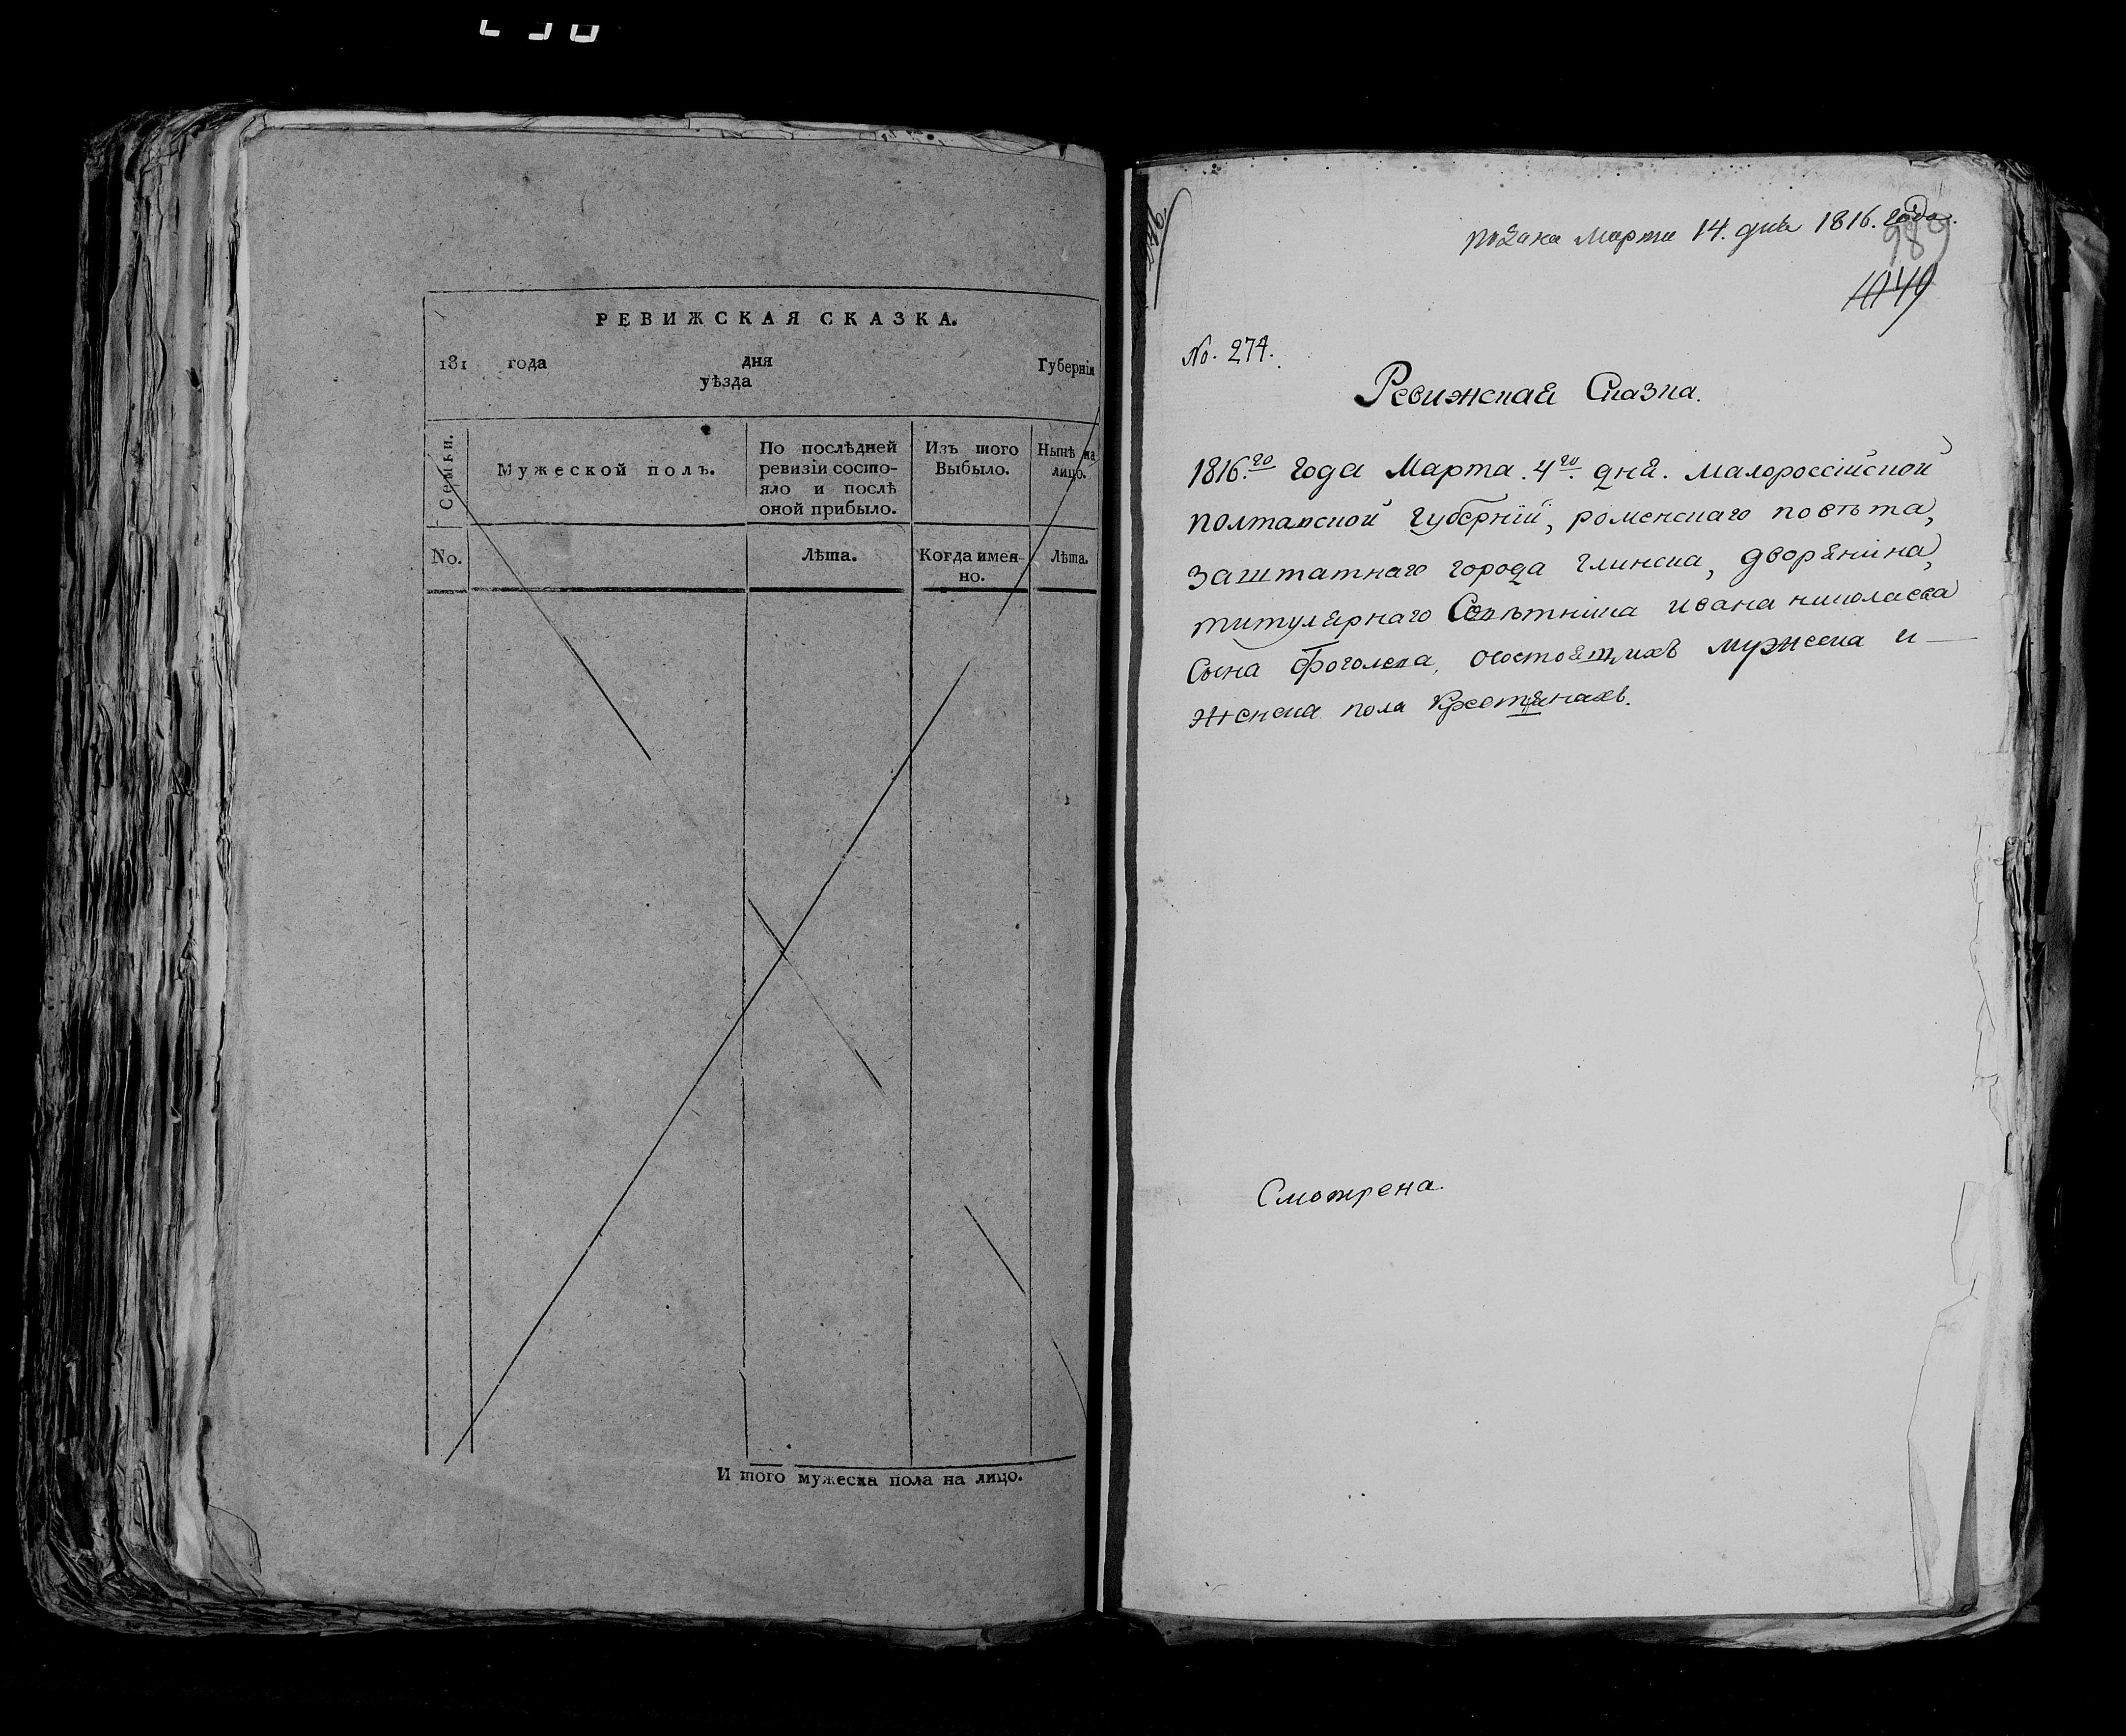 РЕВИЖСКАЯ СКАЗКА.
181 года дня Губернiи
уѣзда
Семьи.
Мужеской полъ.
По послѣдней
ревизiи состо-
яло и послѣ
оной прибыло.
Изъ того
Выбыло.
Нынѣ на
лицо.
No.
Лѣта.
Когда имен-
но.
Лѣта.
И того мужеска пола на лицо.
подана Марта 14. дня 1816. года.
989
1049
No. 274.
Ревижская Сказка.
1816.го года Марта. 4го. дня. малороссiйской
полтавской губернiй, роменскаго повѣта,
заштатнаго города глинска, дворянiна,
титулярнаго Совѣтнiка ивана николаева
Сына осостоящихъ мужеска и
женска пола крестянахъ.
Смотрена.